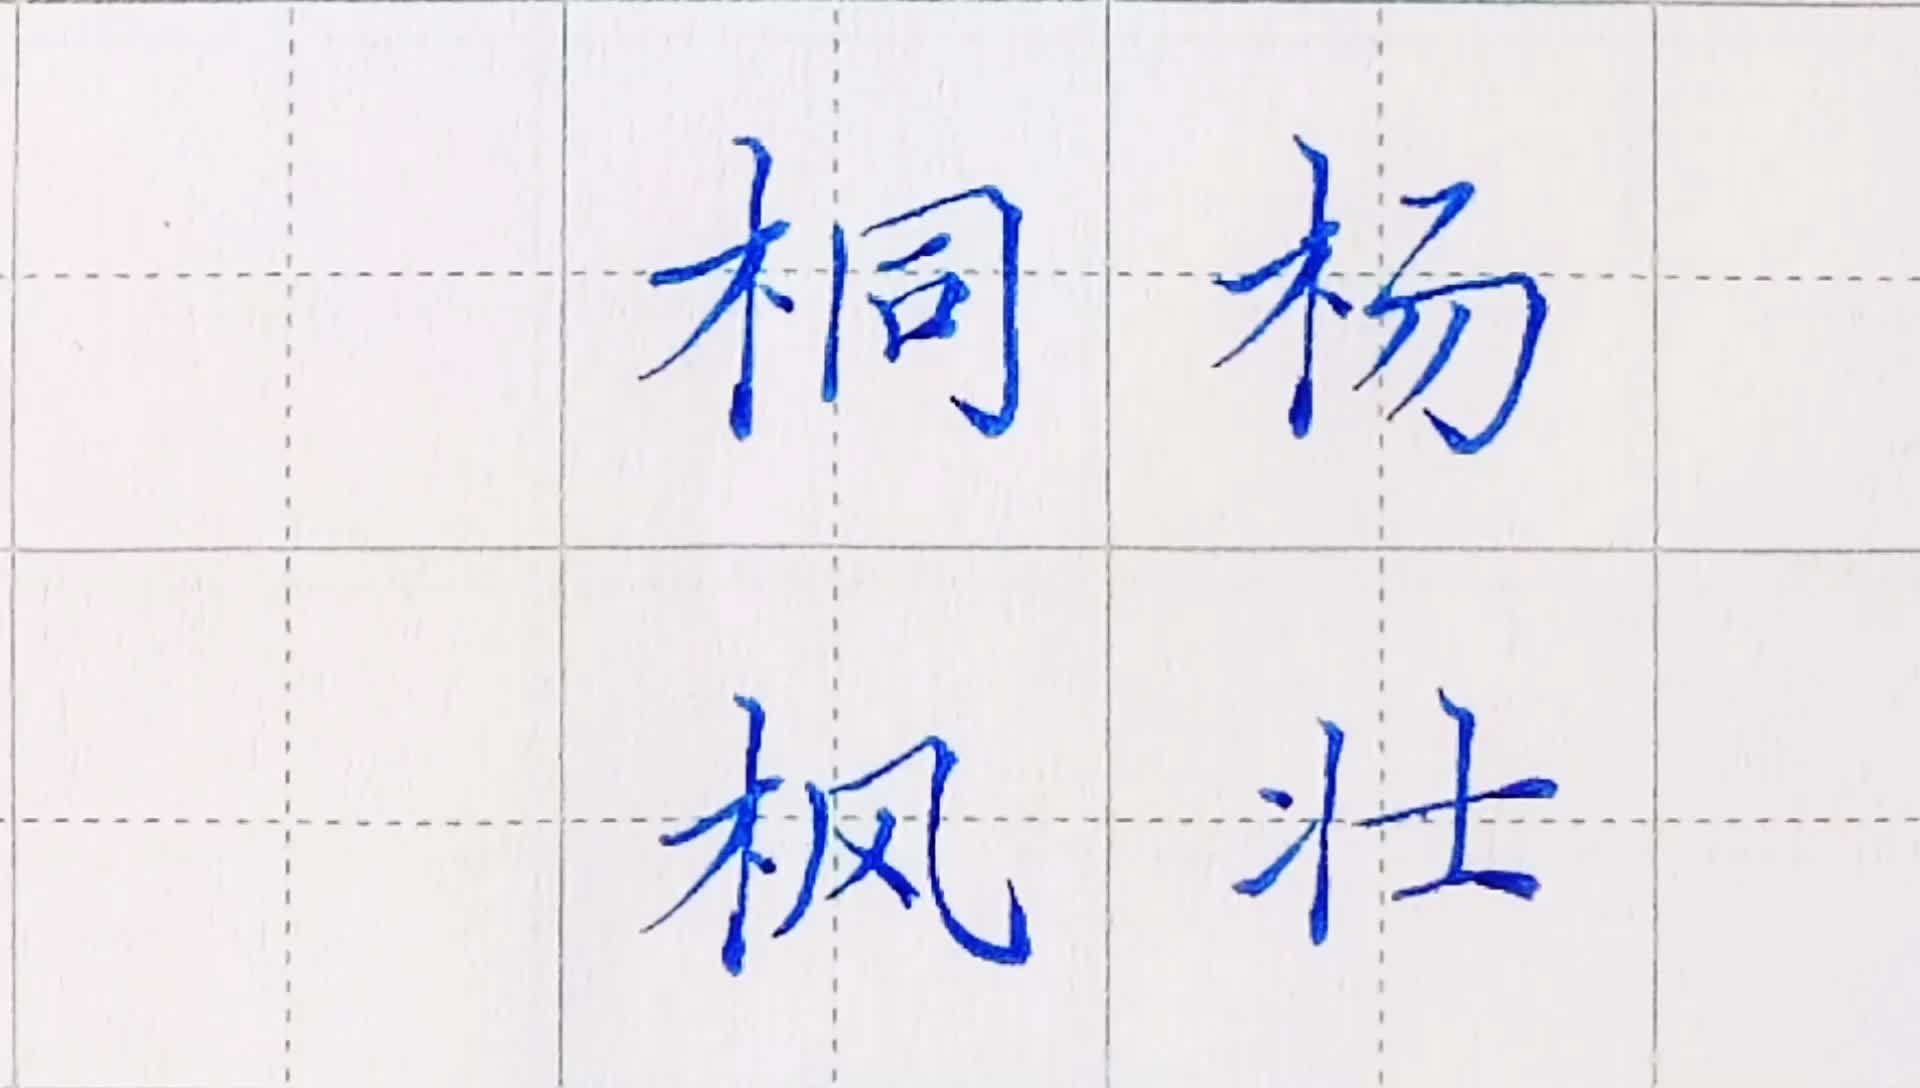 桐杨
枫壮